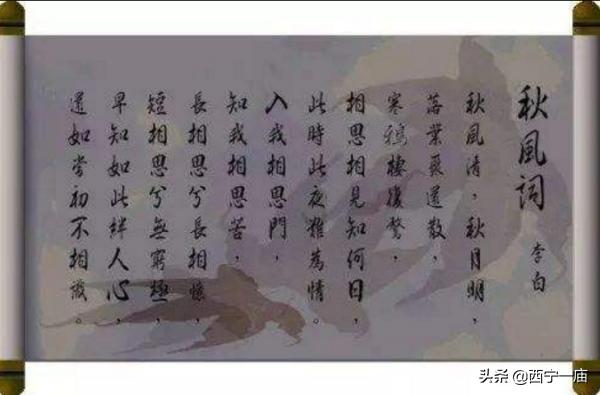 秋風詞
李白
秋風清，秋月明，
落葉聚還散，
寒鴉棲復驚，
相思相見知何日，
此時此夜難為情。
入我相思門，
知我相思苦，
長相思兮長相憶，
短相思兮無窮極，
早知如此絆人心，
還如當初不相識。
头条 @西宁一庙